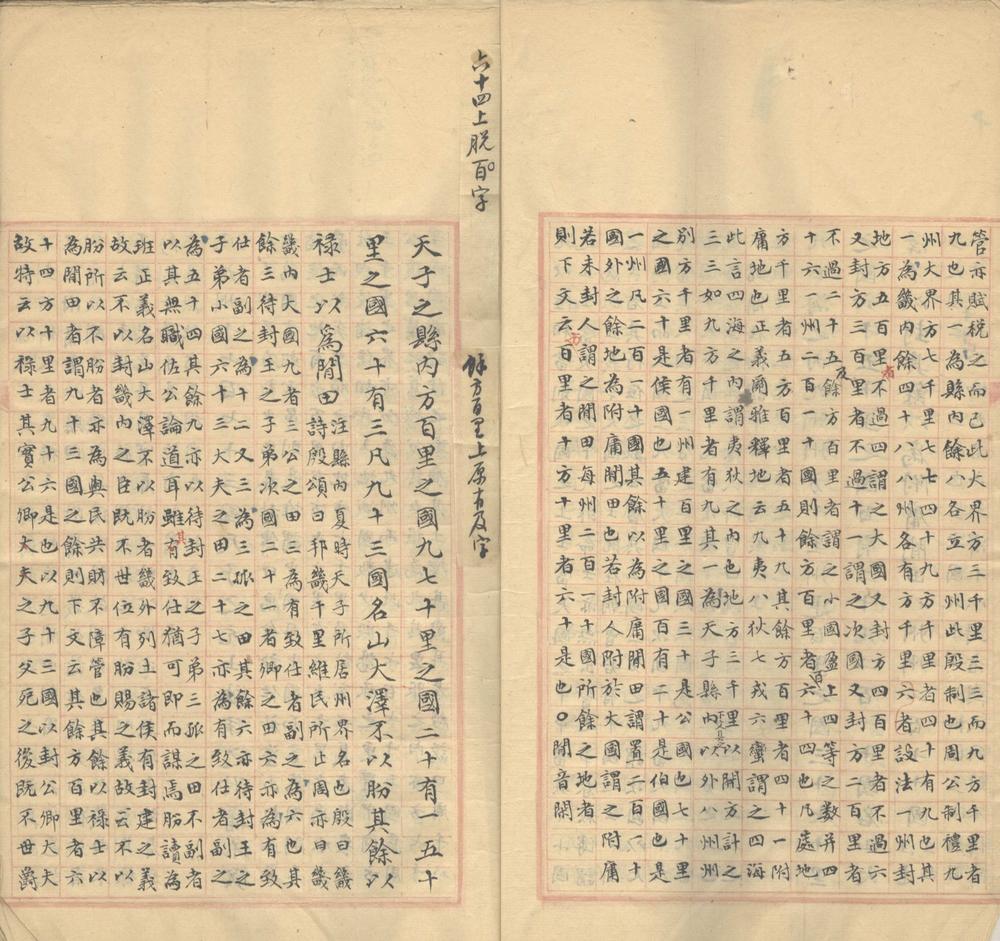 管亦賦稅之而已此大界方三千里三三而九方千里者
九也其一為縣內餘八各立一州此殷制也周公制禮九
州大界方七千里七七四十九方千里者四十有九也其
一為畿內餘四十八八州各有方千里六者設法一州封
地方五百里者不過四謂之大國又封方四百里者不過六
又封方三百里者不過十一謂之次國又封方二百里者
不過二十五及餘方百里者謂之小國盈上四等之數并四
十六一州二百一十國則餘方百里者百六十四也凡處地
方千里者五方百里者五十九其餘方百里者四十一附
庸地也正義爾雅釋地云九夷八狄七戎六蠻謂之四海
此言四海之內謂夷狄之內也地方三千里以開方計之
三三如九方千里者有九其一為天子縣內以外八州州
別方千里者有一州建百里之國三十是公國也七十里
之國六十是侯國也五十里之國百有二十是伯國也是
一州凡二百一十國其餘以為附庸閒田謂置二百一十
國外之餘地為附庸閒田也若封人附於大國謂之附庸
若未封人謂之閒田每州二百一十國所餘之地者
則下文云方百里者十方十里者六十是也○閒音閑
六十四上脱百字
餘方百里上原有及字
天子之縣內方百里之國九七十里之國二十有一五十
里之國六十有三凡九十三國名山大澤不以朌其餘以
祿士以爲閒田
注縣內夏時天子所居州界名也殷曰畿
詩殷頌曰邦畿千里維民所止周亦曰畿
畿內大國九者三公之田三為有致仕者副之為六也其
餘三待封王之子弟次國二十一者卿之田六亦為有致
仕者副之為十二又三為三孤之田其餘六亦待封王之
子弟小國六十三大夫之田二十七亦為有致仕者副之
為五十四其餘九亦以待封王之子弟三孤之田不副者
以其無職佐公論道耳雖其有致仕猶可即而謀焉朌讀為
班正義名山大澤不以朌者畿外列土諸侯有封建之義
故云不以封畿內之臣既不世位有朌賜之義故云不以
朌所以不朌者亦為與民共財不障管也其餘以祿士以
為閒田者謂九十三國之餘則下文云其餘方百里者六
十四方十里者九十六是也以九十三國以封公卿大夫
故特云以祿士其實公卿大夫之子父死之後既不世爵